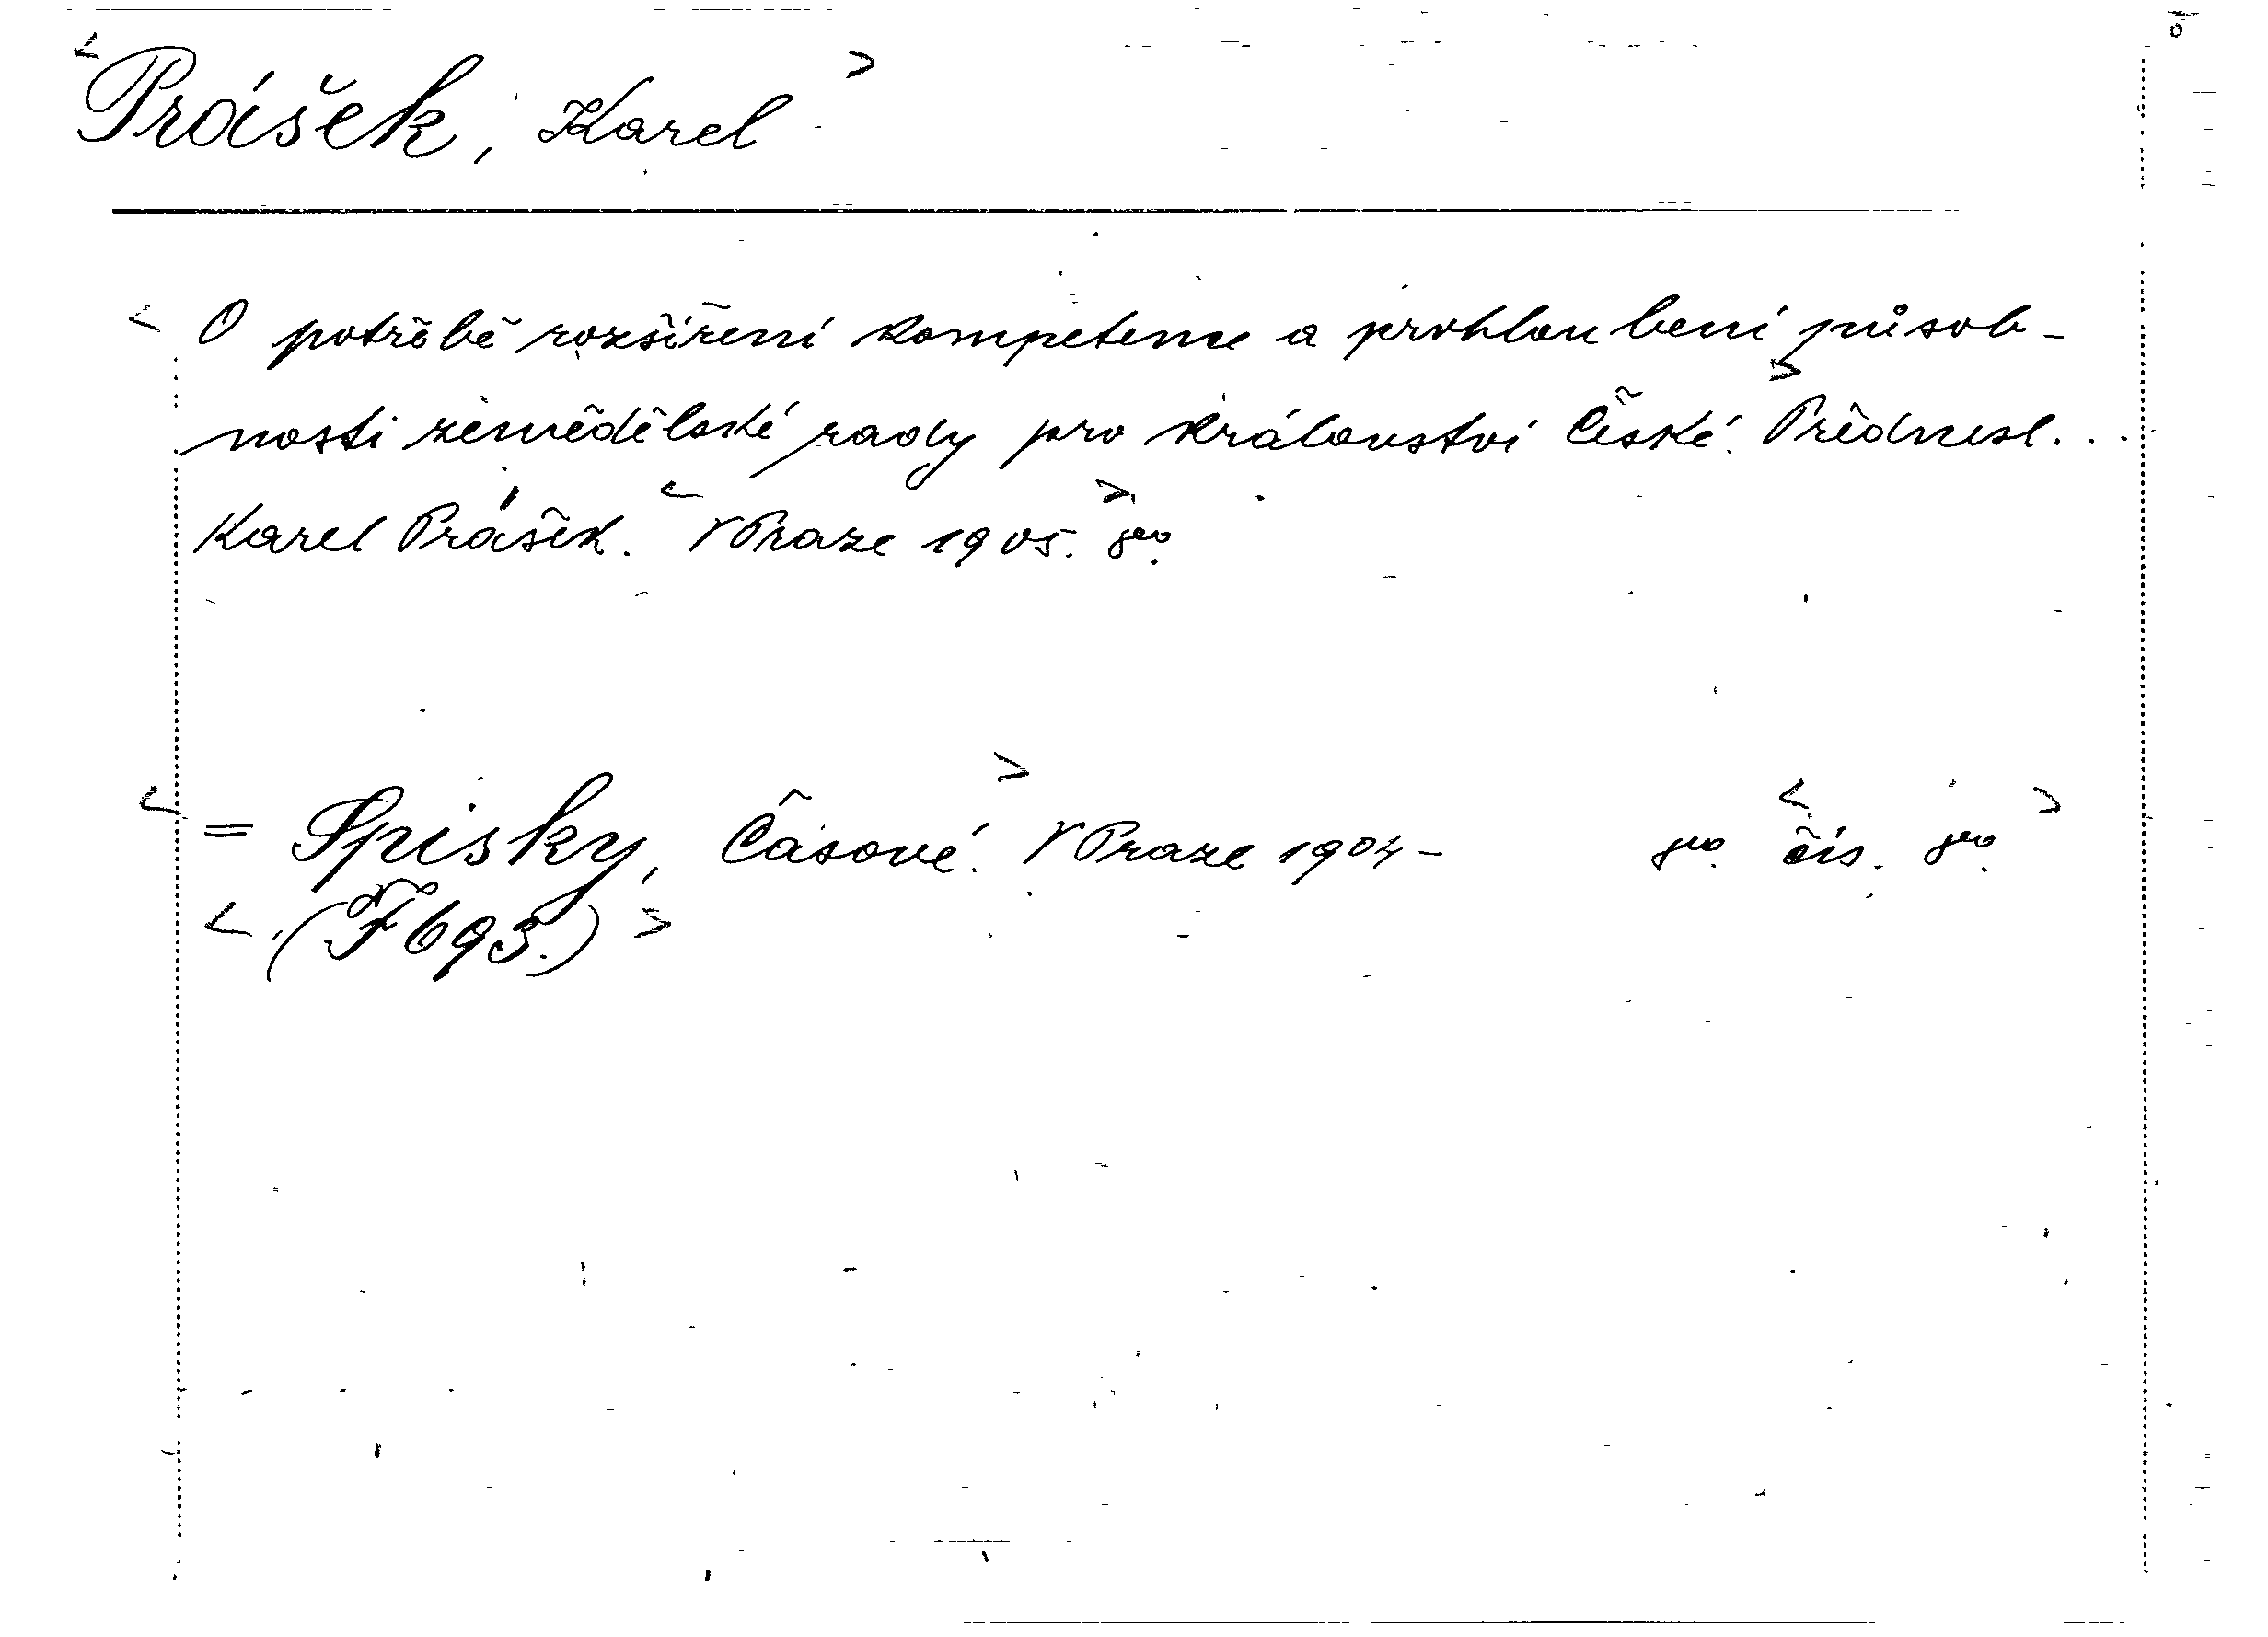 Prášek, Karel
O potřebě rozšíření kompetence a prohloubení působ-
nosti zemědělské rady pro království České. Přednesl...
Karel Prášek. V Praze 1905. 8vo.
= Spisky, Časové. V Praze 1904- 8vo. čís. 8vo.
(F 693.)